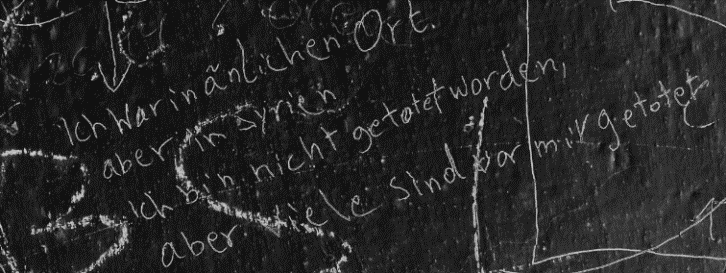 Ich War in änlichen Ort.
aber in Syrien
Ich bin nicht getotet worden,
aber viele sind vor mir getotet